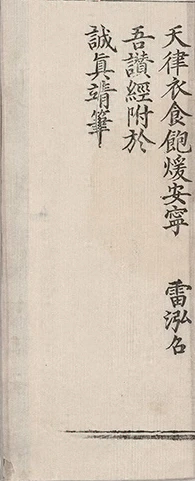 天律衣食飽煖安寧　雷泓名
吾讃經附於
誠眞靖筆